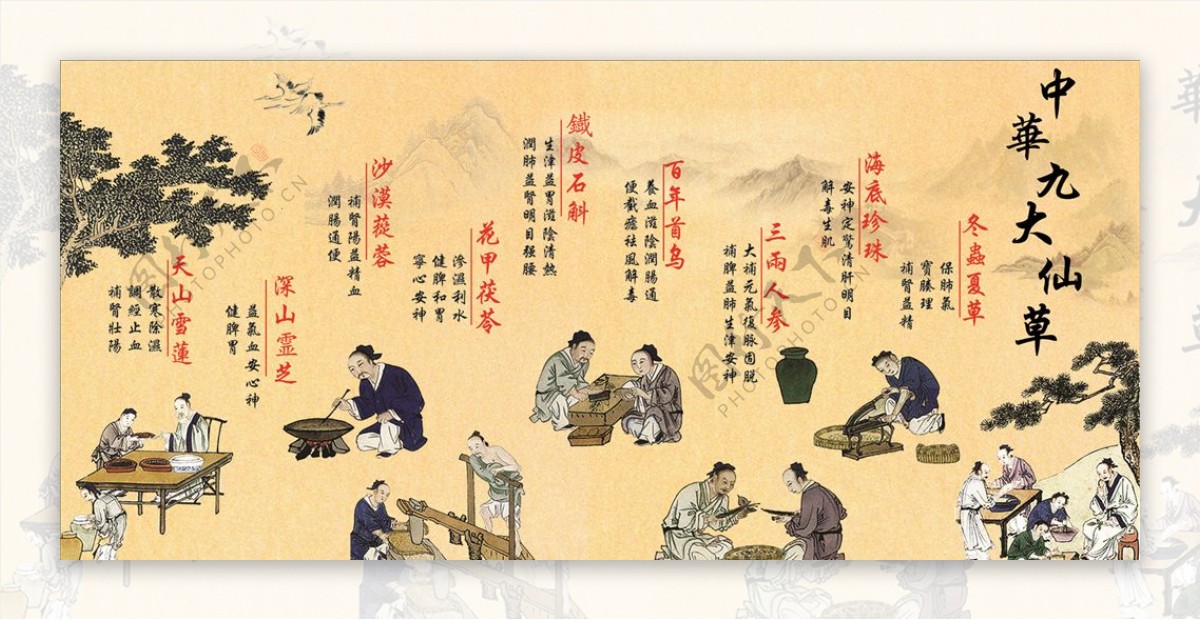 中華九大仙草
冬蟲夏草
保肺氣
實腠理
補腎益精
海底珍珠
安神定驚清肝明目
解毒生肌
三兩人参
大補元氣復脉固脱
補脾益肺生津安神
百年首乌
養血滋陰潤腸通
便截瘧祛風解毒
鐵皮石斛
生津益胃滋陰清熱
潤肺益腎明目强腰
花甲茯苓
滲濕利水
健脾和胃
寧心安神
沙漠蓯蓉
補腎陽益精血
潤腸通便
深山靈芝
益氣血安心神
健脾胃
天山雪蓮
散寒除濕
調經止血
補腎壯陽